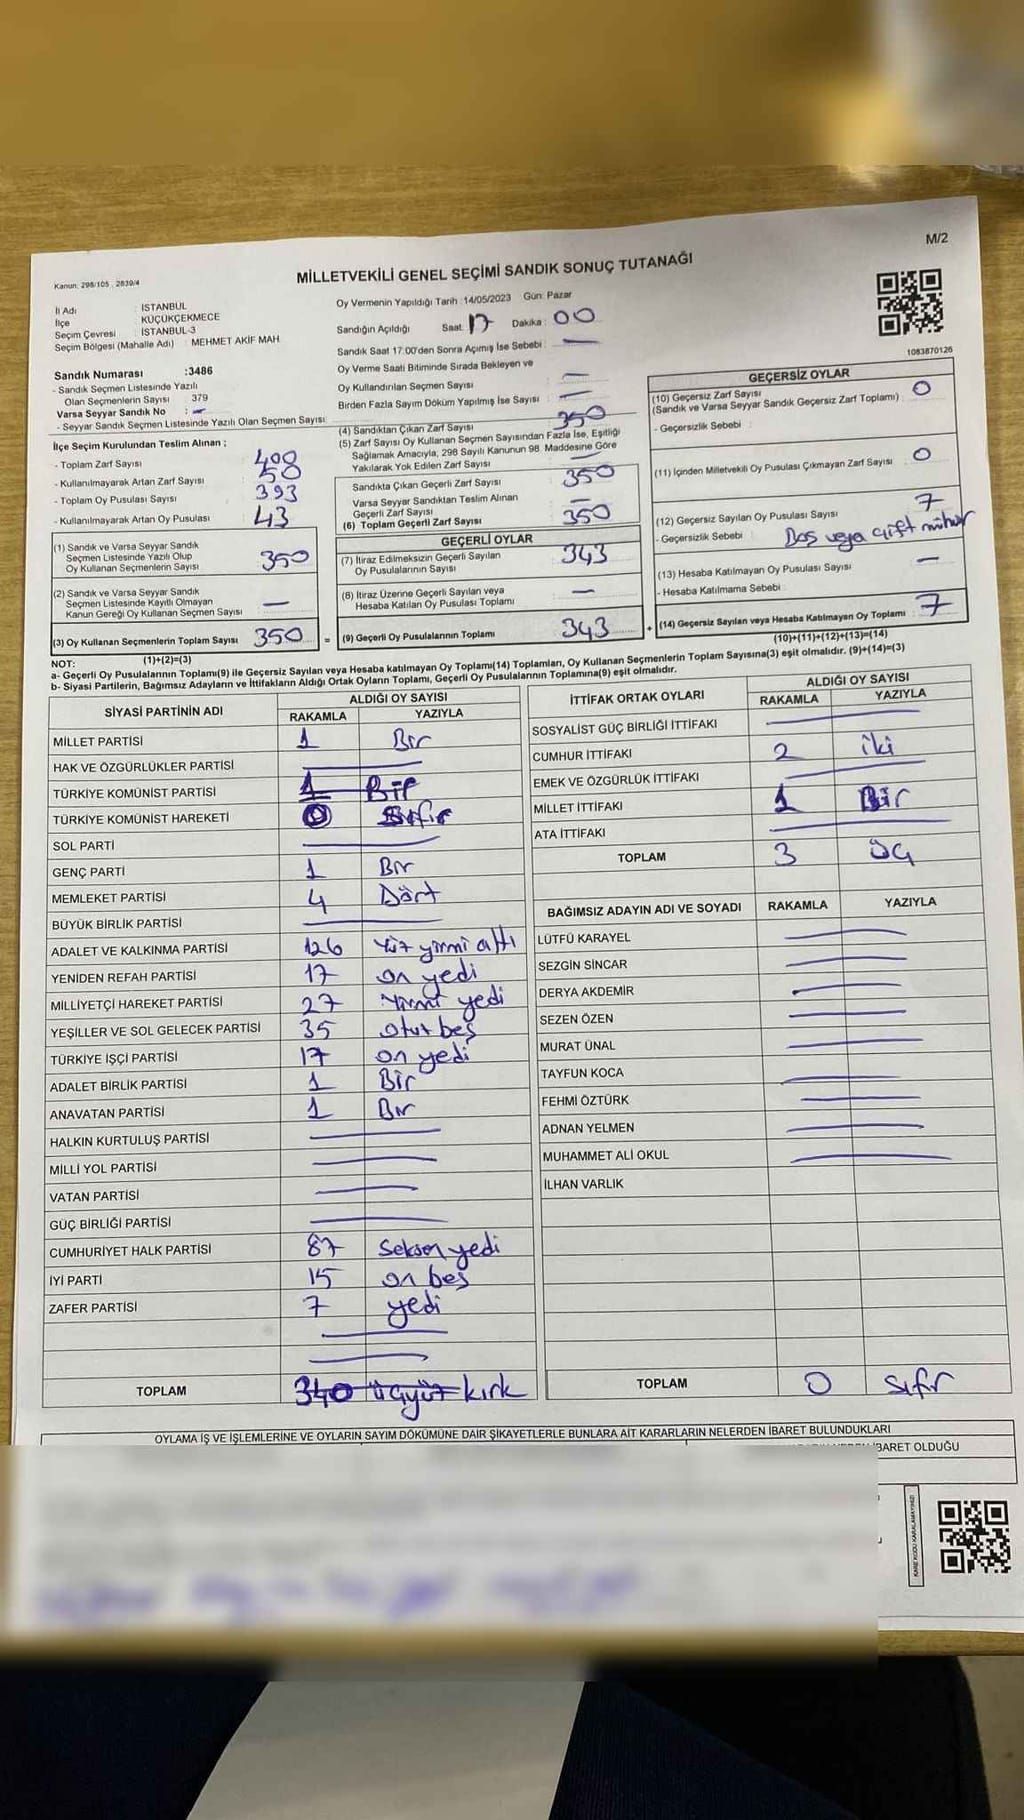 M/2
Kanun: 298/105 , 2839/4
MİLLETVEKİLİ GENEL SEÇİMİ SANDIK SONUÇ TUTANAĞI
İl Adı : İSTANBUL
İlçe : KÜÇÜKÇEKMECE
Seçim Çevresi : İSTANBUL-3
Seçim Bölgesi (Mahalle Adı) : MEHMET AKİF MAH
Sandık Numarası :3486
- Sandık Seçmen Listesinde Yazılı
Olan Seçmenlerin Sayısı : 379
Varsa Seyyar Sandık No : –
- Seyyar Sandık Seçmen Listesinde Yazılı Olan Seçmen Sayısı :
İlçe Seçim Kurulundan Teslim Alınan ;
- Toplam Zarf Sayısı : 400
- Kullanılmayarak Artan Zarf Sayısı : 50
- Toplam Oy Pusulası Sayısı : 393
- Kullanılmayarak Artan Oy Pusulası : 43
(1) Sandık ve Varsa Seyyar Sandık
Seçmen Listesinde Yazılı Olup
Oy Kullanan Seçmenlerin Sayısı 350
(2) Sandık ve Varsa Seyyar Sandık
Seçmen Listesinde Kayıtlı Olmayan
Kanun Gereği Oy Kullanan Seçmen Sayısı —
(3) Oy Kullanan Seçmenlerin Toplam Sayısı 350 =
(1)+(2)=(3)
Oy Vermenin Yapıldığı Tarih :14/05/2023 Gün: Pazar
Sandığın Açıldığı Saat: 17 Dakika : 00
Sandık Saat 17:00'den Sonra Açımış İse Sebebi : —
Oy Verme Saati Bitiminde Sırada Bekleyen ve
Oy Kullandırılan Seçmen Sayısı : —
Birden Fazla Sayım Döküm Yapılmış İse Sayısı : —
(4) Sandıktan Çıkan Zarf Sayısı 350
(5) Zarf Sayısı Oy Kullanan Seçmen Sayısından Fazla İse, Eşitliği
Sağlamak Amacıyla, 298 Sayılı Kanunun 98. Maddesine Göre
Yakılarak Yok Edilen Zarf Sayısı : —
Sandıkta Çıkan Geçerli Zarf Sayısı 350
Varsa Seyyar Sandıktan Teslim Alınan
Geçerli Zarf Sayısı —
(6) Toplam Geçerli Zarf Sayısı 350
GEÇERLİ OYLAR
(7) İtiraz Edilmeksizin Geçerli Sayılan
Oy Pusulalarının Sayısı 343
(8) İtiraz Üzerine Geçerli Sayılan veya
Hesaba Katılan Oy Pusulası Toplamı —
(9) Geçerli Oy Pusulalarının Toplamı 343 +
1083870126
GEÇERSİZ OYLAR
(10) Geçersiz Zarf Sayısı
(Sandık ve Varsa Seyyar Sandık Geçersiz Zarf Toplamı) : 0
- Geçersizlik Sebebi :
(11) İçinden Milletvekili Oy Pusulası Çıkmayan Zarf Sayısı : 0
(12) Geçersiz Sayılan Oy Pusulası Sayısı : 7
- Geçersizlik Sebebi : Boş veya çift mühür
(13) Hesaba Katılmayan Oy Pusulası Sayısı : —
- Hesaba Katılmama Sebebi :
(14) Geçersiz Sayılan veya Hesaba Katılmayan Oy Toplamı : 7
(10)+(11)+(12)+(13)=(14)
NOT:
a- Geçerli Oy Pusulasının Toplamı(9) ile Geçersiz Sayılan veya Hesaba katılmayan Oy Toplamı(14) Toplamları, Oy Kullanan Seçmenlerin Toplam Sayısına(3) eşit olmalıdır. (9)+(14)=(3)
b- Siyasi Partilerin, Bağımsız Adayların ve İttifakların Aldığı Ortak Oyların Toplamı, Geçerli Oy Pusulalarının Toplamına(9) eşit olmalıdır.
SİYASİ PARTİNİN ADI ALDIĞI OY SAYISI
RAKAMLA YAZIYLA
MİLLET PARTİSİ 1 Bir
HAK VE ÖZGÜRLÜKLER PARTİSİ —
TÜRKİYE KOMÜNİST PARTİSİ 1 Bir
TÜRKİYE KOMÜNİST HAREKETİ 0 Sıfır
SOL PARTİ —
GENÇ PARTİ 1 Bir
MEMLEKET PARTİSİ 4 Dört
BÜYÜK BİRLİK PARTİSİ —
ADALET VE KALKINMA PARTİSİ 126 Yüz yirmi altı
YENİDEN REFAH PARTİSİ 17 on yedi
MİLLİYETÇİ HAREKET PARTİSİ 27 Yirmi yedi
YEŞİLLER VE SOL GELECEK PARTİSİ 35 otuz beş
TÜRKİYE İŞÇİ PARTİSİ 17 on yedi
ADALET BİRLİK PARTİSİ 1 Bir
ANAVATAN PARTİSİ 1 Bir
HALKIN KURTULUŞ PARTİSİ —
MİLLİ YOL PARTİSİ —
VATAN PARTİSİ —
GÜÇ BİRLİĞİ PARTİSİ —
CUMHURİYET HALK PARTİSİ 87 Seksen yedi
İYİ PARTİ 15 on beş
ZAFER PARTİSİ 7 yedi
TOPLAM 340 üçyüz kırk
İTTİFAK ORTAK OYLARI ALDIĞI OY SAYISI
RAKAMLA YAZIYLA
SOSYALİST GÜÇ BİRLİĞİ İTTİFAKI —
CUMHUR İTTİFAKI 2 iki
EMEK VE ÖZGÜRLÜK İTTİFAKI —
MİLLET İTTİFAKI 1 Bir
ATA İTTİFAKI —
TOPLAM 3 Üç
BAĞIMSIZ ADAYIN ADI VE SOYADI RAKAMLA YAZIYLA
LÜTFÜ KARAYEL —
SEZGİN SİNCAR —
DERYA AKDEMİR —
SEZEN ÖZEN —
MURAT ÜNAL —
TAYFUN KOCA —
FEHMİ ÖZTÜRK —
ADNAN YELMEN —
MUHAMMET ALİ OKUL —
İLHAN VARLIK
TOPLAM 0 sıfır
OYLAMA İŞ VE İŞLEMLERİNE VE OYLARIN SAYIM DÖKÜMÜNE DAİR ŞİKAYETLERLE BUNLARA AİT KARARLARIN NELERDEN İBARET BULUNDUKLARI
İBARET OLDUĞU
KARE KODU KARALAMAYINIZ!